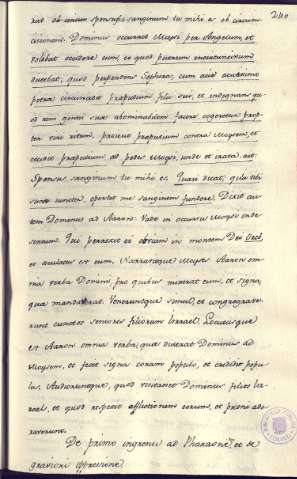 240
ras ob unum sponsus sanguinum tu mihi es ob circum
cisionem. Dominus occurrit Moysi per Angelum et
volebat occidere eum, eo quod puerum incircuncisum
ducebat; quod perpendens Sephora, cum acie acutissima
petra circumcidit praeputium filii sui, et indignans qu
od rem genti suæ abominabilem facere cogeretur prop
ter viri ritum, proiecit praeputium contra Moysem, et
cecidit praeputium ad pedes Moysi, unde et irata ait:
Sponsus sanguinum tu mihi es. Quasi dicat, quia tibi
sum iuncta, oportet me sanguinem fundere. Dixit au
tem Dominus ad Aaron: Vade in occursu Moysi in de
sertum. Qui perrexit ei obviam in montem Dei Oreb,
et osculatus est eum, Narravitque Moyses Aaron om
nia verba Domini pro quibus miserat eum, et signa,
quæ mandaverat. Veneruntque simul, et congregave
runt cunctos seniores filiorum Israel, Locutusque
est Aaron omnia verba, quæ dixerat Dominus ad
Moysem, et fecit signa coram populo, et credidit popu
lus. Audieruntque, quod visitasset Dominus filios Is
rael, et quod respexit afflictionem eorum, et proni ado
raverunt.
De primo ingressu ad Pharaonem, et de
graviori oppressione.